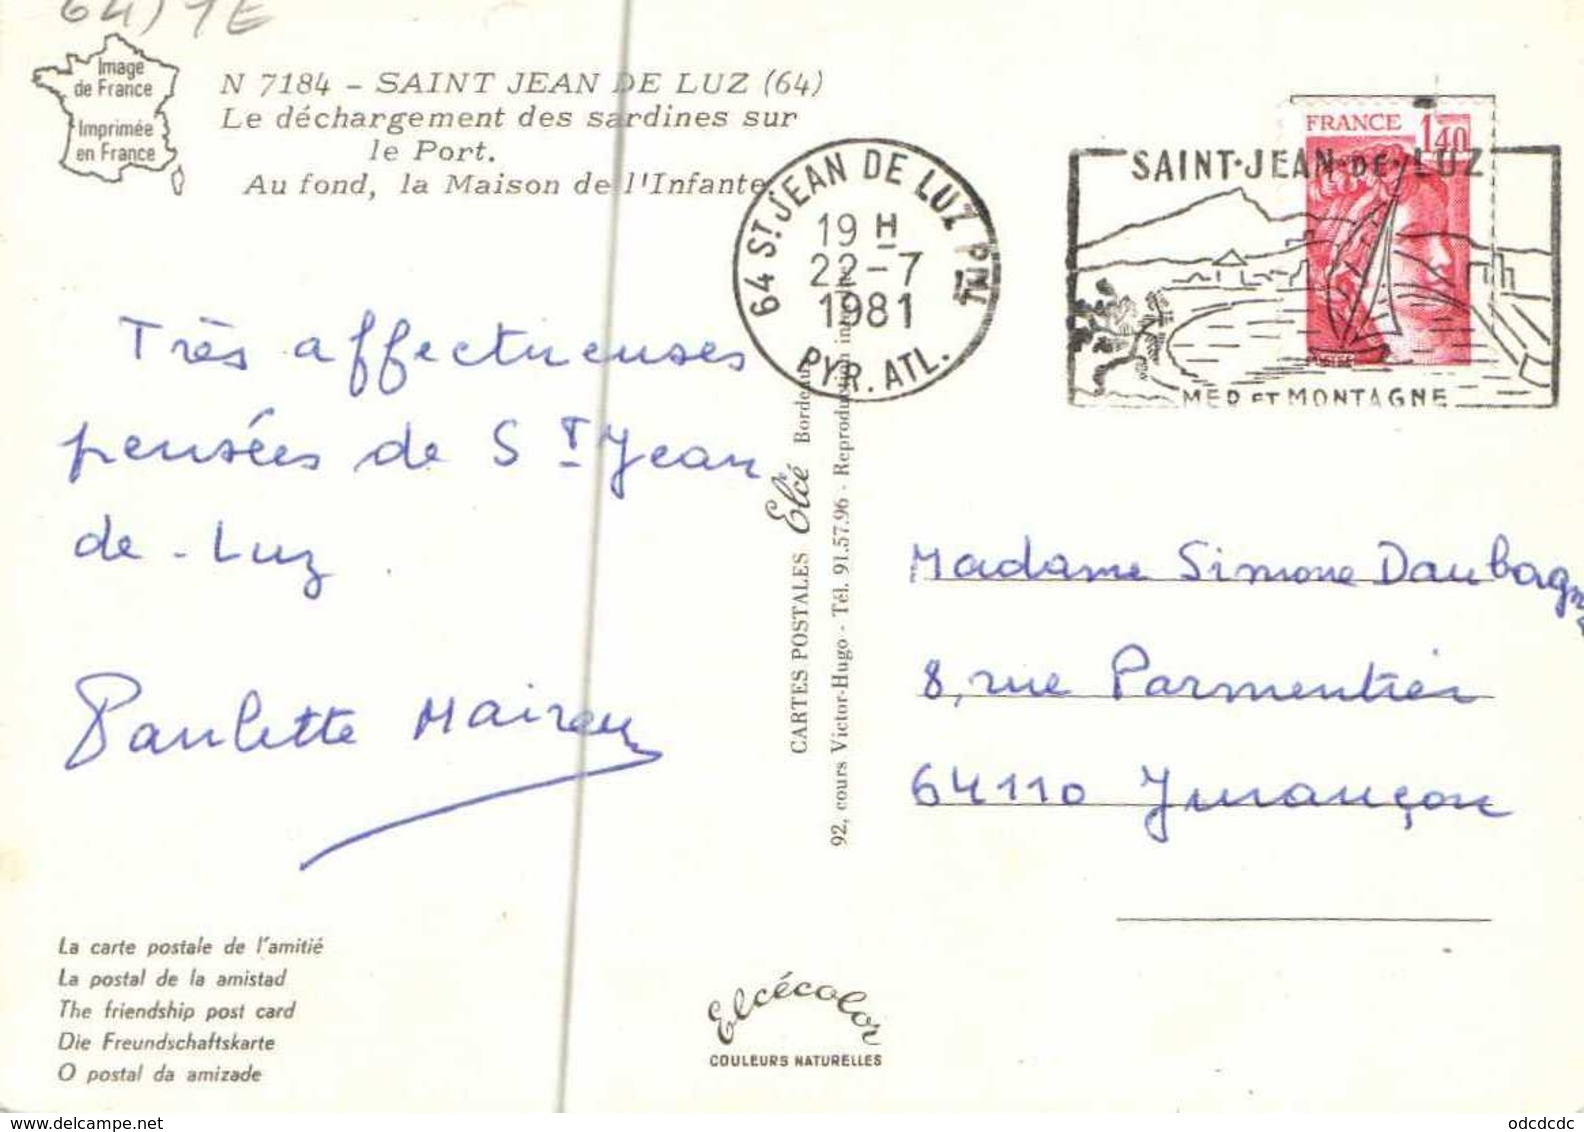 64) 9E
Image
de France
Imprimée
en France
N 7184 - SAINT JEAN DE LUZ (64)
Le déchargement des sardines sur
le Port.
Au fond, la Maison de l'Infante
64 ST. JEAN DE LUZ PPAL
19 H
22-7
1981
PYR. ATL.
FRANCE 1,40
SAINT-JEAN-DE-LUZ
MER ET MONTAGNE
Très affectueuses
pensées de St Jean
de-Luz.
Paulette
CARTES POSTALES Elcé Bordeaux
92, cours Victor-Hugo - Tél. 91.57.96 - Reproduction
Madame Simone Daubagna
8, rue Parmentier
64110 Jurançon
La carte postale de l'amitié
La postal de la amistad
The friendship post card
Die Freundschaftskarte
O postal da amizade
Elcécolor
COULEURS NATURELLES
Delcampe.net
odcdcdc